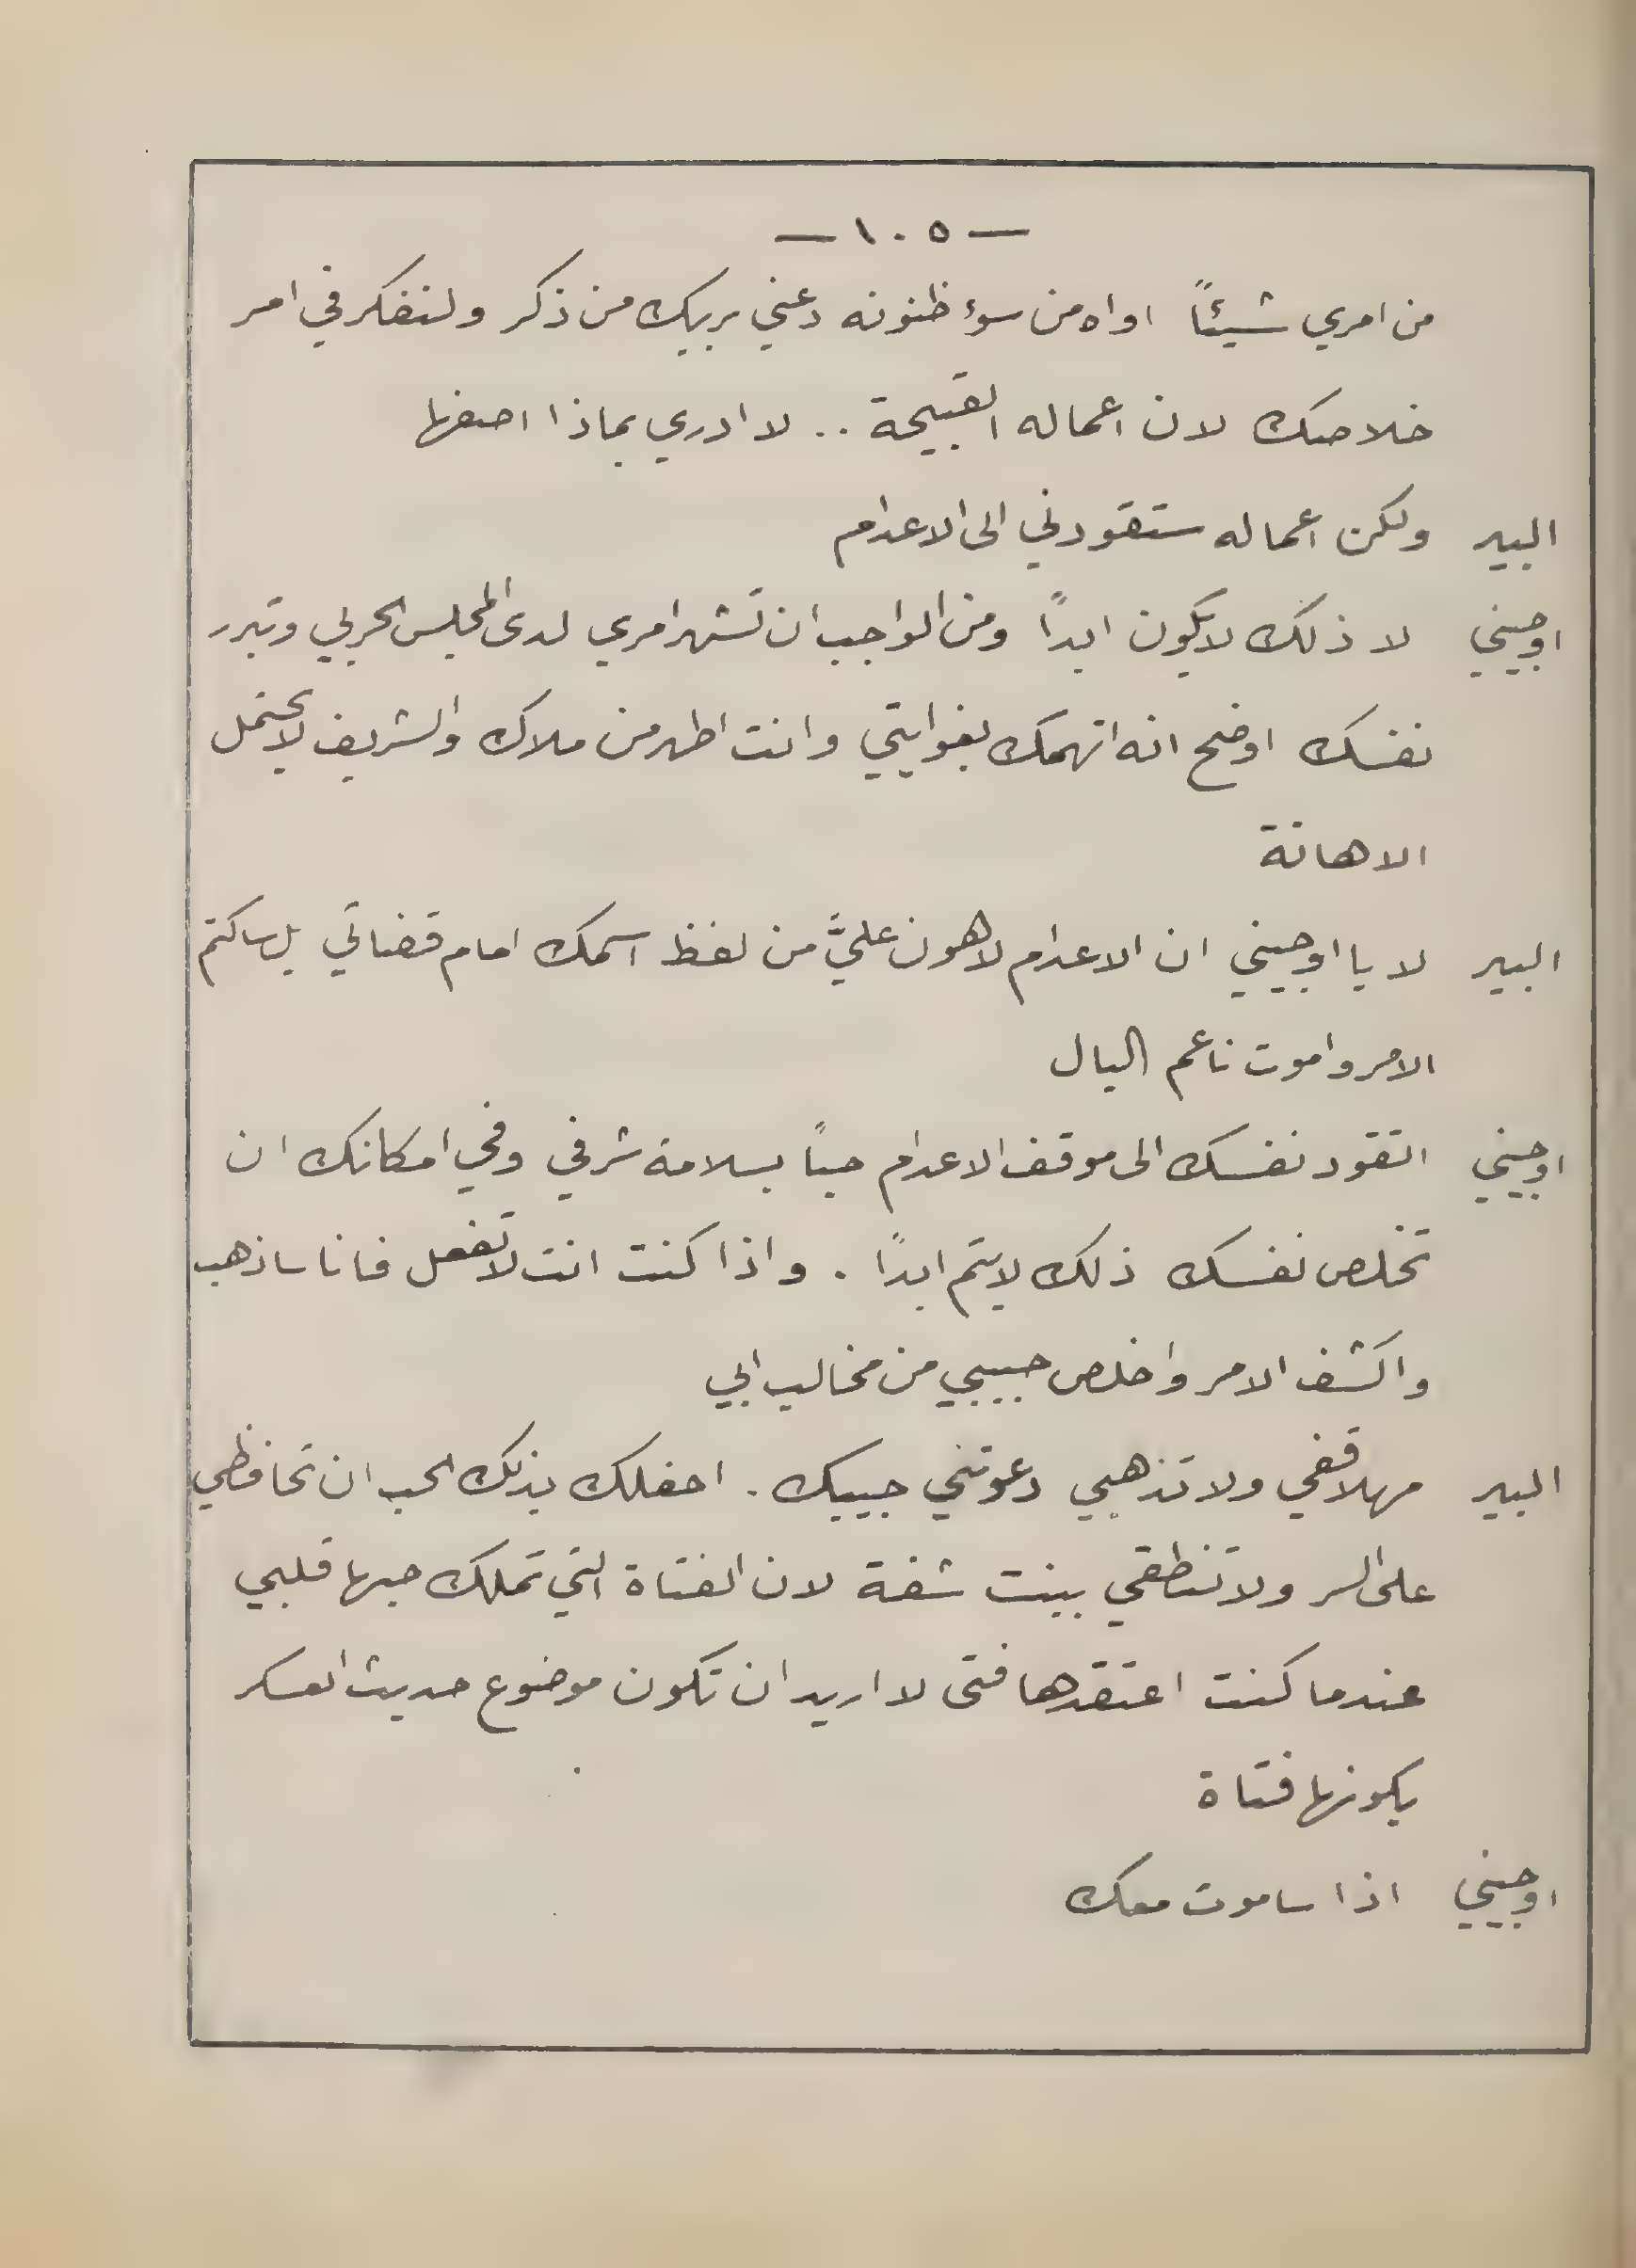 — ١٠٥ —
من امري شيئاً اواه من سوء ظنونه دعني بربك من ذكر ولنفكر في امر
خلاصك لان اعماله القبيحة .. لا ادري بماذا اصفها
البير ولكن اعماله ستقودني الى الاعدام
اوجيني لا ذلك لا يكون ابداً ومن الواجب ان تشهر امري لدى المجلس الحربي وتبرر
نفسك اوضح انه اتهمك بغوايتي وانت اطهر من ملاك والشريف لا يحتمل
الاهانة
البير لا يا اوجيني ان الاعدام لاهون عليَّ من لفظ اسمك امام قضاتي بل ساكتم
الامر واموت ناعم البال
اوجيني اتقود نفسك الى موقف الاعدام حباً بسلامة شرفي وفي امكانك ان
تخلص نفسك ذلك لا يتم ابداً . واذا كنت انت لا تفعل فانا ساذهب
واكشف الامر واخلص حبيبي من مخالب ابي
البير مهلا قفي ولا تذهبي دعوتني حبيبك . احفلك بذلك الحب ان تحافظي
على السر ولا تنطقي ببنت شفة لان الفتاة التي تملك حبها قلبي
عندما كنت اعتقدها فتى لا اريد ان تكون موضوع حديث العسكر
بكونها فتاة
اوجيني اذا ساموت معك